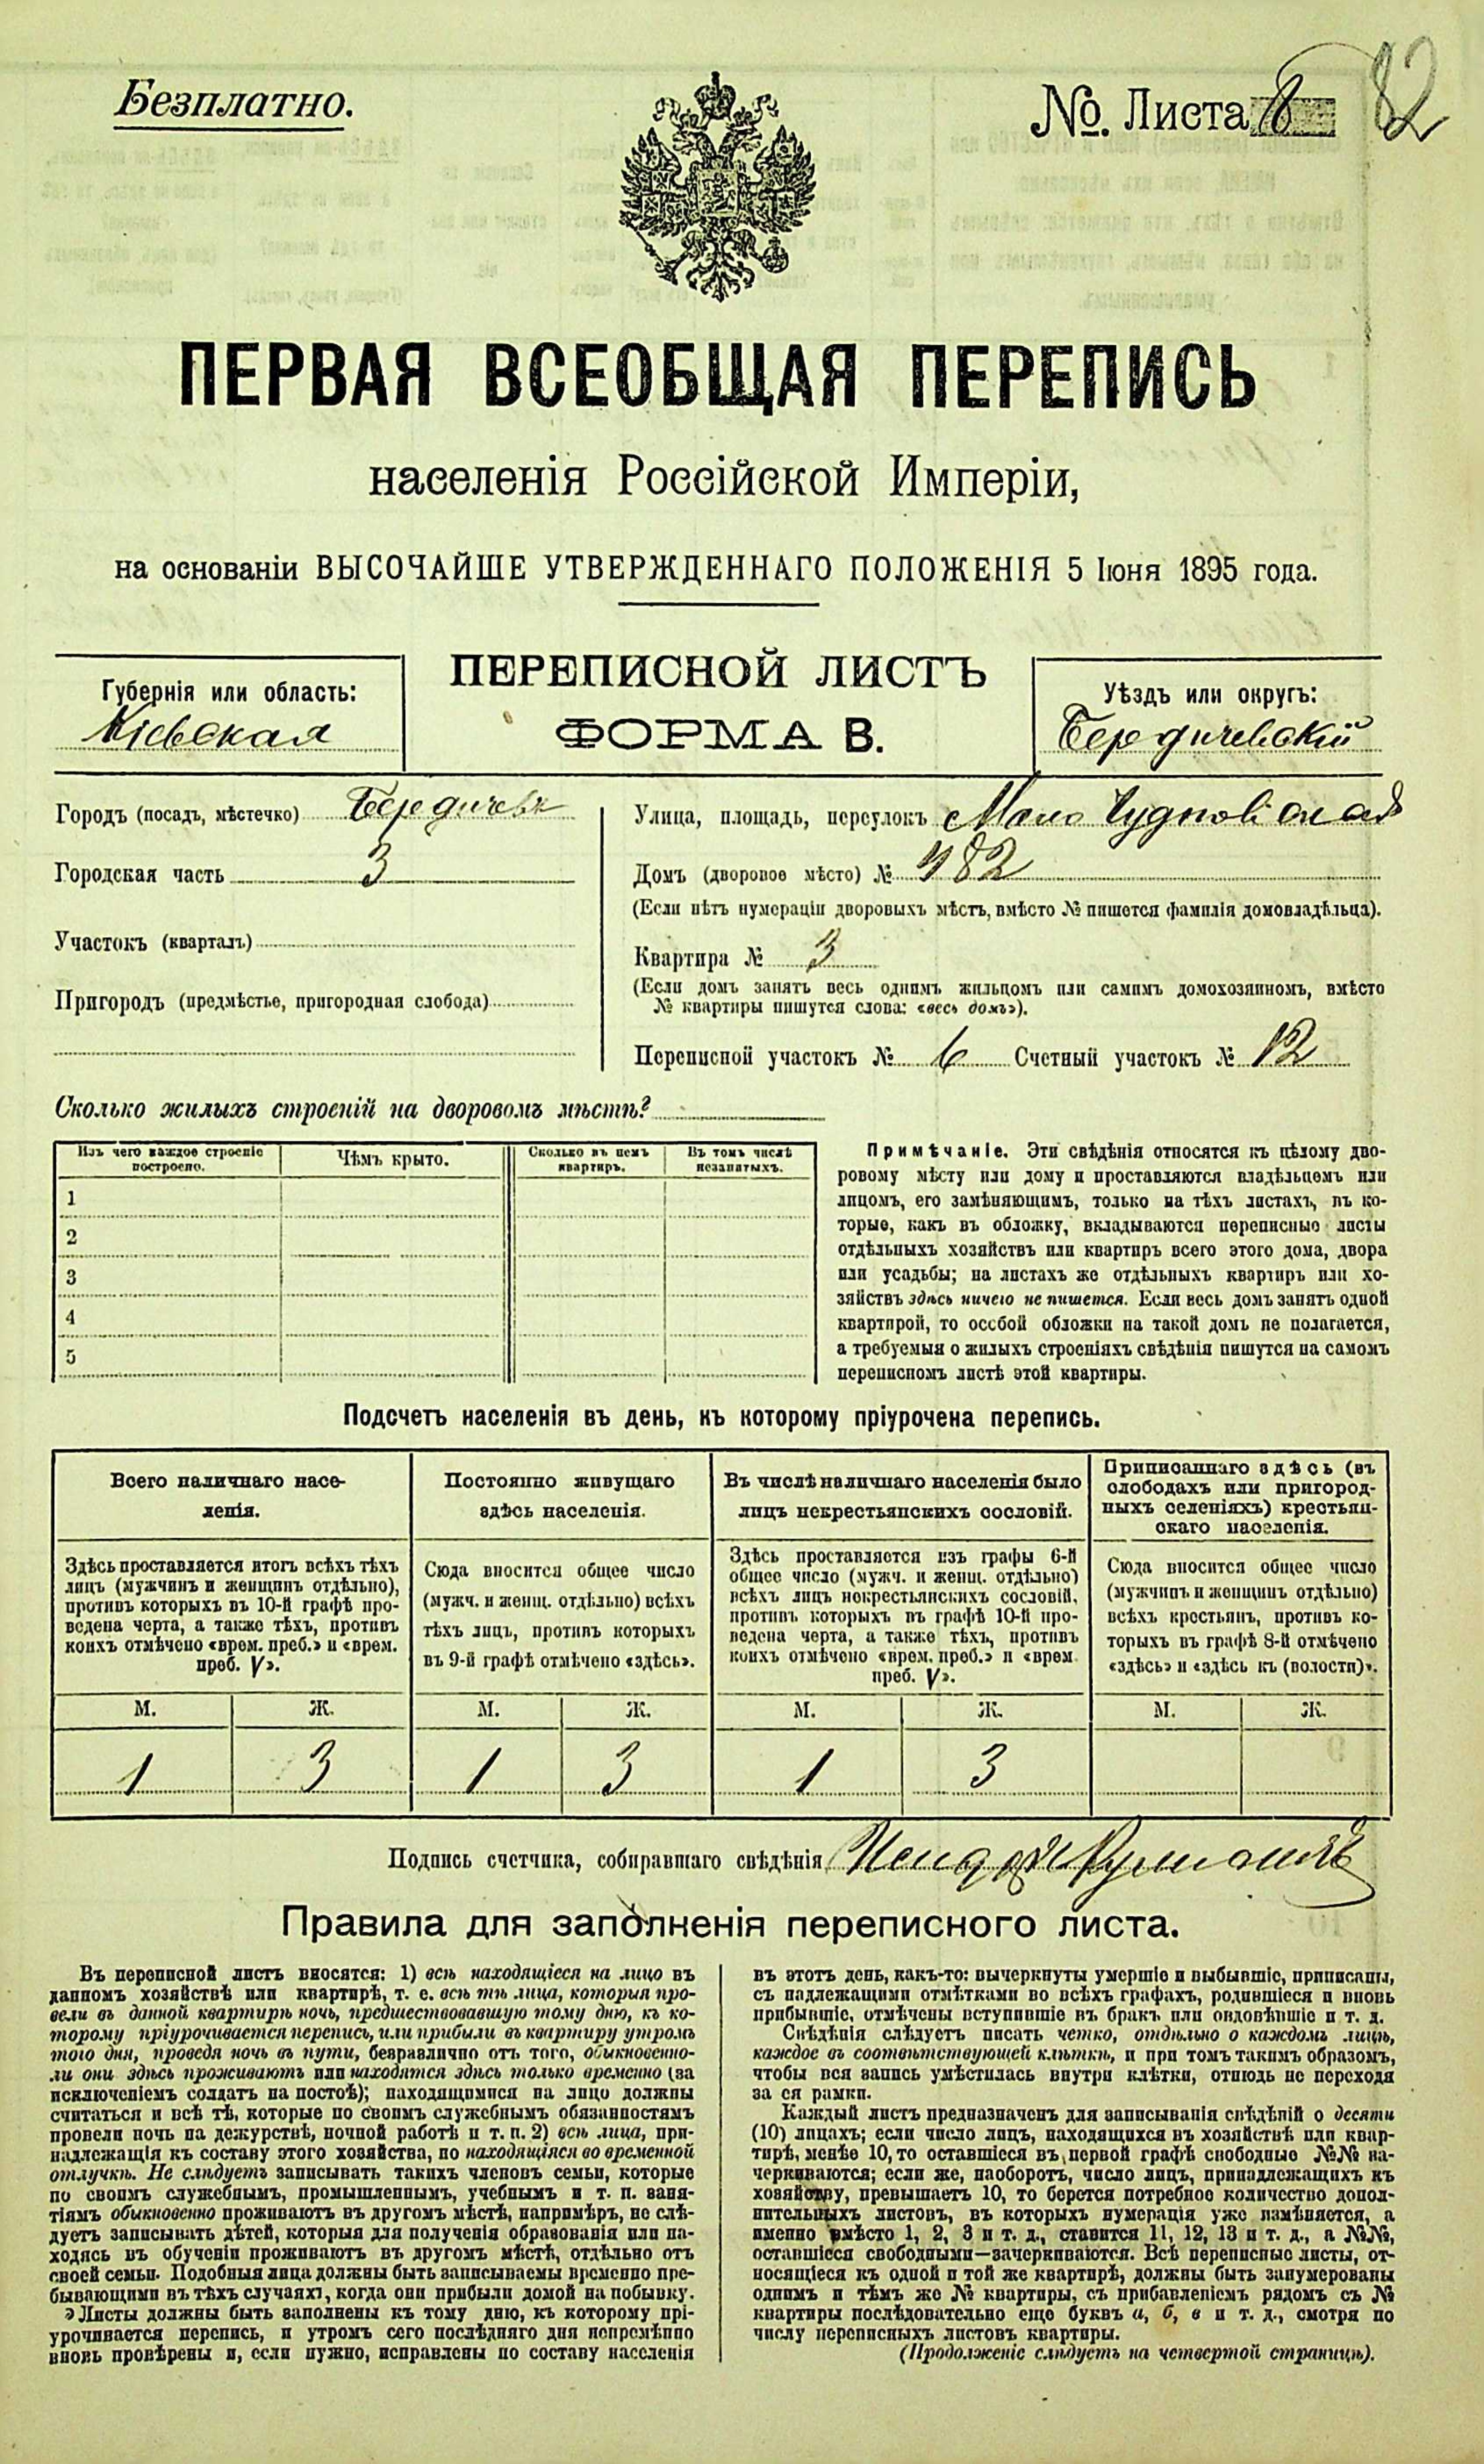 Безплатно.
№. Листа 8
82
ПЕРВАЯ ВСЕОБЩАЯ ПЕРЕПИСЬ
населенія Россійской Имперіи,
на основаніи ВЫСОЧАЙШЕ УТВЕРЖДЕННАГО ПОЛОЖЕНІЯ 5 Іюня 1895 года.
ПЕРЕПИСНОЙ ЛИСТЪ
ФОРМА В.
Губернія или область:
Кіевская
Уѣздъ или округъ:
Бердичевскій
Городъ (посадъ, мѣстечко) Бердичевъ
Городская часть 3
Участокъ (кварталъ)
Пригородъ (предмѣстье, пригородная слобода)
Улица, площадь, переулокъ Мало Чудновская
Домъ (дворовое мѣсто) № 482
(Если нѣтъ нумераціи дворовыхъ мѣстъ, вмѣсто № пишется фамилія домовладѣльца).
Квартира № 3
(Если домъ занятъ весь однимъ жильцомъ или самимъ домохозяиномъ, вмѣсто
№ квартиры пишутся слова: «весь домъ»).
Переписной участокъ № 6 Счетный участокъ № 12
Сколько жилыхъ строеній на дворовомъ мѣстѣ?
Изъ чего каждое строеніе
построено.
Чѣмъ крыто.
Сколько въ немъ
квартиръ.
Въ томъ числѣ
незанятыхъ.
1
2
3
4
5
Примѣчаніе. Эти свѣдѣнія относятся къ цѣлому дво-
ровому мѣсту или дому и проставляются владѣльцемъ или
лицомъ, его замѣняющимъ, только на тѣхъ листахъ, въ ко-
торые, какъ въ обложку, вкладываются переписные листы
отдѣльныхъ хозяйствъ или квартиръ всего этого дома, двора
или усадьбы; на листахъ же отдѣльныхъ квартиръ или хо-
зяйствъ здѣсь ничего не пишется. Если весь домъ занятъ одной
квартирой, то особой обложки на такой домъ не полагается,
а требуемыя о жилыхъ строеніяхъ свѣдѣнія пишутся на самомъ
переписномъ листѣ этой квартиры.
Подсчетъ населенія въ день, къ которому пріурочена перепись.
Всего наличнаго насе-
ленія.
Здѣсь проставляется итогъ всѣхъ тѣхъ
лицъ (мужчинъ и женщинъ отдѣльно),
противъ которыхъ въ 10-й графѣ про-
ведена черта, а также тѣхъ, противъ
коихъ отмѣчено «врем. преб.» и «врем.
преб. V».
Постоянно живущаго
здѣсь населенія.
Сюда вносится общее число
(мужч. и женщ. отдѣльно) всѣхъ
тѣхъ лицъ, противъ которыхъ
въ 9-й графѣ отмѣчено «здѣсь».
Въ числѣ наличнаго населенія было
лицъ некрестьянскихъ сословій.
Здѣсь проставляется изъ графы 6-й
общее число (мужч. и женщ. отдѣльно)
всѣхъ лицъ некрестьянскихъ сословій,
противъ которыхъ въ графѣ 10-й про-
ведена черта, а также тѣхъ, противъ
коихъ отмѣчено «врем. преб.» и «врем.
преб. V».
Приписаннаго здѣсь (въ
слободахъ или пригород-
ныхъ селеніяхъ) крестьян-
скаго населенія.
Сюда вносится общее число
(мужчинъ и женщинъ отдѣльно)
всѣхъ крестьянъ, противъ ко-
торыхъ въ графѣ 8-й отмѣчено
«здѣсь» и «здѣсь къ (волости)».
М. Ж. М. Ж. М. Ж. М. Ж.
1 3 1 3 1 3
Подпись счетчика, собиравшаго свѣдѣнія
Правила для заполненія переписного листа.
Въ переписной листъ вносятся: 1) всѣ находящіеся на лицо въ
данномъ хозяйствѣ или квартирѣ, т. е. всѣ тѣ лица, которыя про-
вели въ данной квартирѣ ночь, предшествовавшую тому дню, къ ко-
торому пріурочивается перепись, или прибыли въ квартиру утромъ
того дня, проведя ночь въ пути, безразлично отъ того, обыкновенно-
ли они здѣсь проживаютъ или находятся здѣсь только временно (за
исключеніемъ солдатъ на постоѣ); находящимися на лицо должны
считаться и всѣ тѣ, которые по своимъ служебнымъ обязанностямъ
провели ночь на дежурствѣ, ночной работѣ и т. п. 2) всѣ лица, при-
надлежащія къ составу этого хозяйства, но находящіяся во временной
отлучкѣ. Не слѣдуетъ записывать такихъ членовъ семьи, которые
по своимъ служебнымъ, промышленнымъ, учебнымъ и т. п. заня-
тіямъ обыкновенно проживаютъ въ другомъ мѣстѣ, напримѣръ, не слѣ-
дуетъ записывать дѣтей, которыя для полученія образованія или на-
ходясь въ обученіи проживаютъ въ другомъ мѣстѣ, отдѣльно отъ
своей семьи. Подобныя лица должны быть записываемы временно пре-
бывающими въ тѣхъ случаяхъ, когда они прибыли домой на побывку.
Листы должны быть заполнены къ тому дню, къ которому прі-
урочивается перепись, и утромъ сего послѣдняго дня непремѣнно
вновь провѣрены и, если нужно, исправлены по составу населенія
въ этотъ день, какъ-то: вычеркнуты умершіе и выбывшіе, приписаны,
съ надлежащими отмѣтками во всѣхъ графахъ, родившіеся и вновь
прибывшіе, отмѣчены вступившіе въ бракъ или овдовѣвшіе и т. д.
Свѣдѣнія слѣдуетъ писать четко, отдѣльно о каждомъ лицѣ,
каждое въ соотвѣтствующей клѣткѣ, и при томъ такимъ образомъ,
чтобы вся запись умѣстилась внутри клѣтки, отнюдь не переходя
за ея рамки.
Каждый листъ предназначенъ для записыванія свѣдѣній о десяти
(10) лицахъ; если число лицъ, находящихся въ хозяйствѣ или квар-
тирѣ, менѣе 10, то оставшіеся въ первой графѣ свободные №№ за-
черкиваются; если же, наоборотъ, число лицъ, принадлежащихъ къ
хозяйству, превышаетъ 10, то берется потребное количество допол-
нительныхъ листовъ, въ которыхъ нумерація уже измѣняется, а
именно вмѣсто 1, 2, 3 и т. д., ставится 11, 12, 13 и т. д., а №№,
оставшіеся свободными—зачеркиваются. Всѣ переписные листы, от-
носящіеся къ одной и той же квартирѣ, должны быть занумерованы
однимъ и тѣмъ же № квартиры, съ прибавленіемъ рядомъ съ №
квартиры послѣдовательно еще буквъ а, б, в и т. д., смотря по
числу переписныхъ листовъ квартиры.
(Продолженіе слѣдуетъ на четвертой страницѣ).